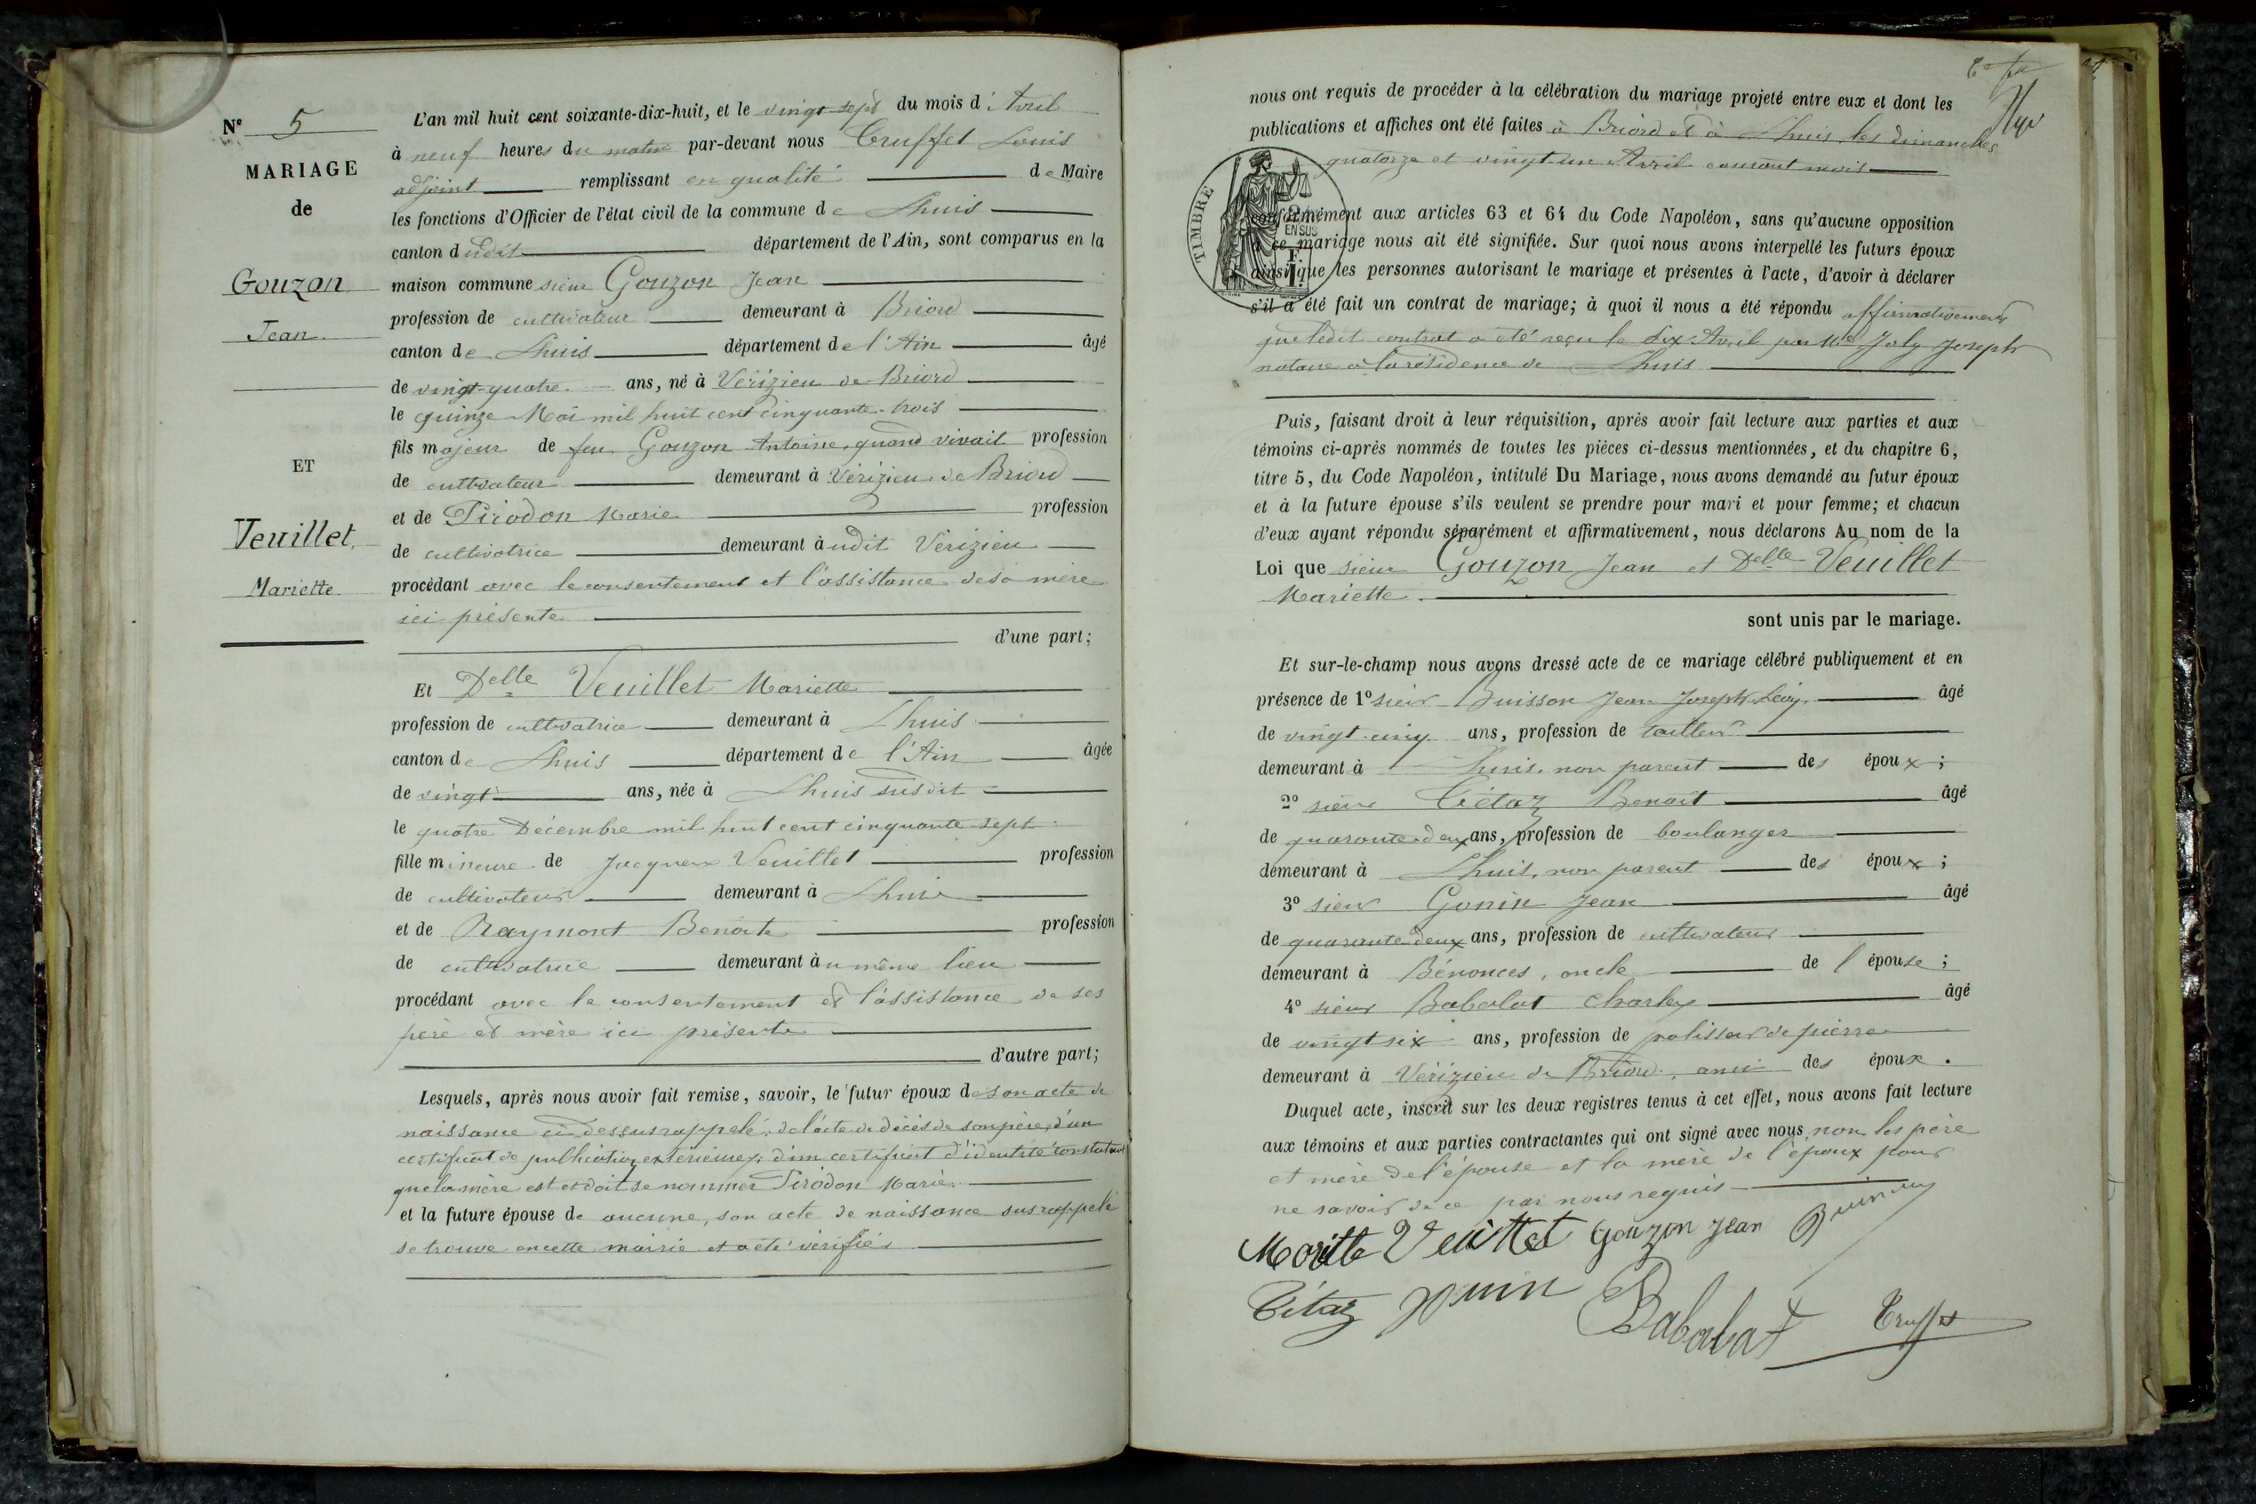 N° 5
MARIAGE
de
Gouzon
Jean
ET
Veuillet
Mariette
L'an mil huit cent soixante-dix-huit, et le vingt sept du mois d'Avril
à neuf heures du matin par-devant nous Truffet Louis
adjoint remplissant en qualité de Maire
les fonctions d'Officier de l'état civil de la commune de Lhuis
canton dudit département de l'Ain, sont comparus en la
maison commune sieur Gouzon Jean
profession de cultivateur demeurant à Briord
canton de Lhuis département de l'Ain âgé
de vingt-quatre ans, né à Vérizieu de Briord
le quinze Mai mil huit cent cinquante-trois
fils majeur de feu Gouzon Antoine, quand vivait profession
de cultivateur demeurant à Vérizieu de Briord
et de Pirodon Marie profession
de cultivatrice demeurant audit Vérizieu
procédant avec le consentement et l'assistance de sa mère
ici présente
d'une part;
Et Delle Veuillet Mariette
profession de cultivatrice demeurant à Lhuis
canton de Lhuis département de l'Ain âgée
de vingt ans, née à Lhuis susdit
le quatre Décembre mil huit cent cinquante sept
fille mineure de Jacques Veuillet profession
de cultivateur demeurant à Lhuis
et de Raymont Benoite profession
de cultivatrice demeurant au même lieu
procédant avec le consentement et l'assistance de ses
père et mère ici présents
d'autre part;
Lesquels, après nous avoir fait remise, savoir, le futur époux de son acte de
naissance ci dessus rappelé, de l'acte de décès de son père, d'un
certificat de publication extérieure, d'un certificat d'identité constatant
que la mère est et doit se nommer Pirodon Marie
et la future épouse de aucune, son acte de naissance susrappelé
se trouve en cette mairie et a été vérifié
nous ont requis de procéder à la célébration du mariage projeté entre eux et dont les
publications et affiches ont été faites à Briord et à Lhuis, les dimanches
quatorze et vingt un Avril courant mois
TIMBRE
EN SUS
conformément aux articles 63 et 64 du Code Napoléon, sans qu'aucune opposition
à ce mariage nous ait été signifiée. Sur quoi nous avons interpellé les futurs époux
ainsi que les personnes autorisant le mariage et présentes à l'acte, d'avoir à déclarer
s'il a été fait un contrat de mariage; à quoi il nous a été répondu affirmativement
que ledit contrat a été reçu le dix Avril par Me Joly Joseph
notaire à la résidence de Lhuis
Puis, faisant droit à leur réquisition, après avoir fait lecture aux parties et aux
témoins ci-après nommés de toutes les pièces ci-dessus mentionnées, et du chapitre 6,
titre 5, du Code Napoléon, intitulé Du Mariage, nous avons demandé au futur époux
et à la future épouse s'ils veulent se prendre pour mari et pour femme; et chacun
d'eux ayant répondu séparément et affirmativement, nous déclarons Au nom de la
Loi que sieur Gouzon Jean et Delle Veuillet
Mariette
sont unis par le mariage.
Et sur-le-champ nous avons dressé acte de ce mariage célébré publiquement et en
présence de 1° sieur Buisson Jean Joseph âgé
de vingt cinq ans, profession de tailleur
demeurant à Lhuis, non parent des époux;
2° sieur Tétaz Benoit âgé
de quarante deux ans, profession de boulanger
demeurant à Lhuis, non parent des époux;
3° sieur Gonin Jean âgé
de quarante deux ans, profession de cultivateur
demeurant à Bénonces, oncle de l'épouse;
4° sieur Babolat Charles âgé
de vingt six ans, profession de polisseur de pierre
demeurant à Vérizieu de Briord, ami des époux.
Duquel acte, inscrit sur les deux registres tenus à cet effet, nous avons fait lecture
aux témoins et aux parties contractantes qui ont signé avec nous, non les père
et mère de l'épouse et la mère de l'époux pour
ne savoir de ce par nous requis
Mariette Veuillet Gouzon Jean Buisson
Tétaz gonin Babolat Truffet